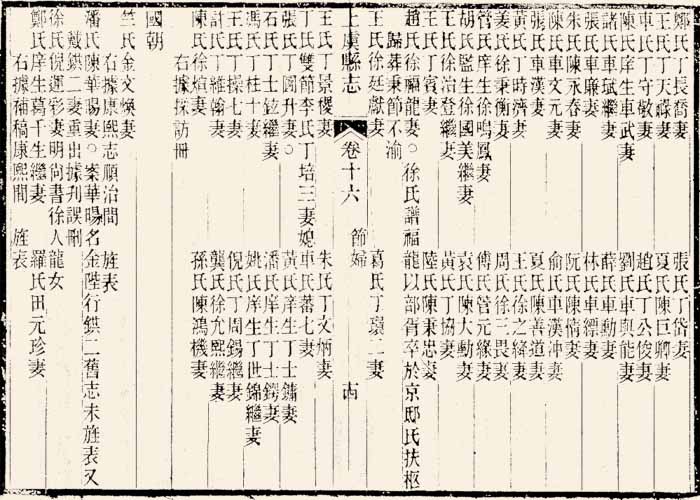 鄭氏丁長喬妻　張氏丁岱妻
王氏丁天霖妻　夏氏陳巨卿妻
車氏丁守敬妻　趙氏丁公俊妻
陳氏庠生車武妻　劉氏車與能妻
諸氏車珷繼妻　薛氏車動妻
張氏車廉妻　林氏車縹妻
朱氏陳永春妻　阮氏陳情妻
陳氏車文元妻　俞氏車漢沖妻
張氏車漢妻　夏氏陳善道妻
黃氏丁時濟妻　王氏徐之緯妻
姜氏徐秉衡妻　周氏徐三畏妻
管氏庠生徐鳴鳳妻　傅氏管元緣妻
胡氏監生徐國美繼妻　袁氏陳大動妻
王氏徐治登繼妻　黃氏丁協妻
王氏丁賓妻　陸氏陳秉忠妻
趙氏徐福龍妻○徐氏譜福龍以部胥卒於京邸氏扶柩
歸葬秉節不渝
王氏徐廷獻妻　葛氏丁瓌二妻
上虞縣志　卷十六　節婦　十四
王氏丁景櫻妻　朱氏丁文炳妻
丁氏雙節李氏丁培三妻媳車氏蕃七妻
張氏丁圓升妻○　黃氏庠生丁士鏞妻
石氏丁士鉉妻　潘氏庠生丁士鍔妻
馮氏丁桂十妻　姚氏庠生丁世錦繼妻
王氏丁操七妻　倪氏丁周錫繼妻
計氏丁維翰妻　龔氏徐允熙繼妻
陳氏徐煊妻　孫氏陳鴻機妻
右據採訪冊
國朝
竺氏金文煥妻
右據康熙志順治間　旌表
潘氏陳華暘妻○案華暘名金陛行鉷二舊志未旌表又
載鉷二妻重出據刋誤刪
徐氏倪運彩妻明尚書徐人龍女
鄭氏庠生葛千生繼妻　羅氏田元珍妻
右據補稿康熙間　旌表